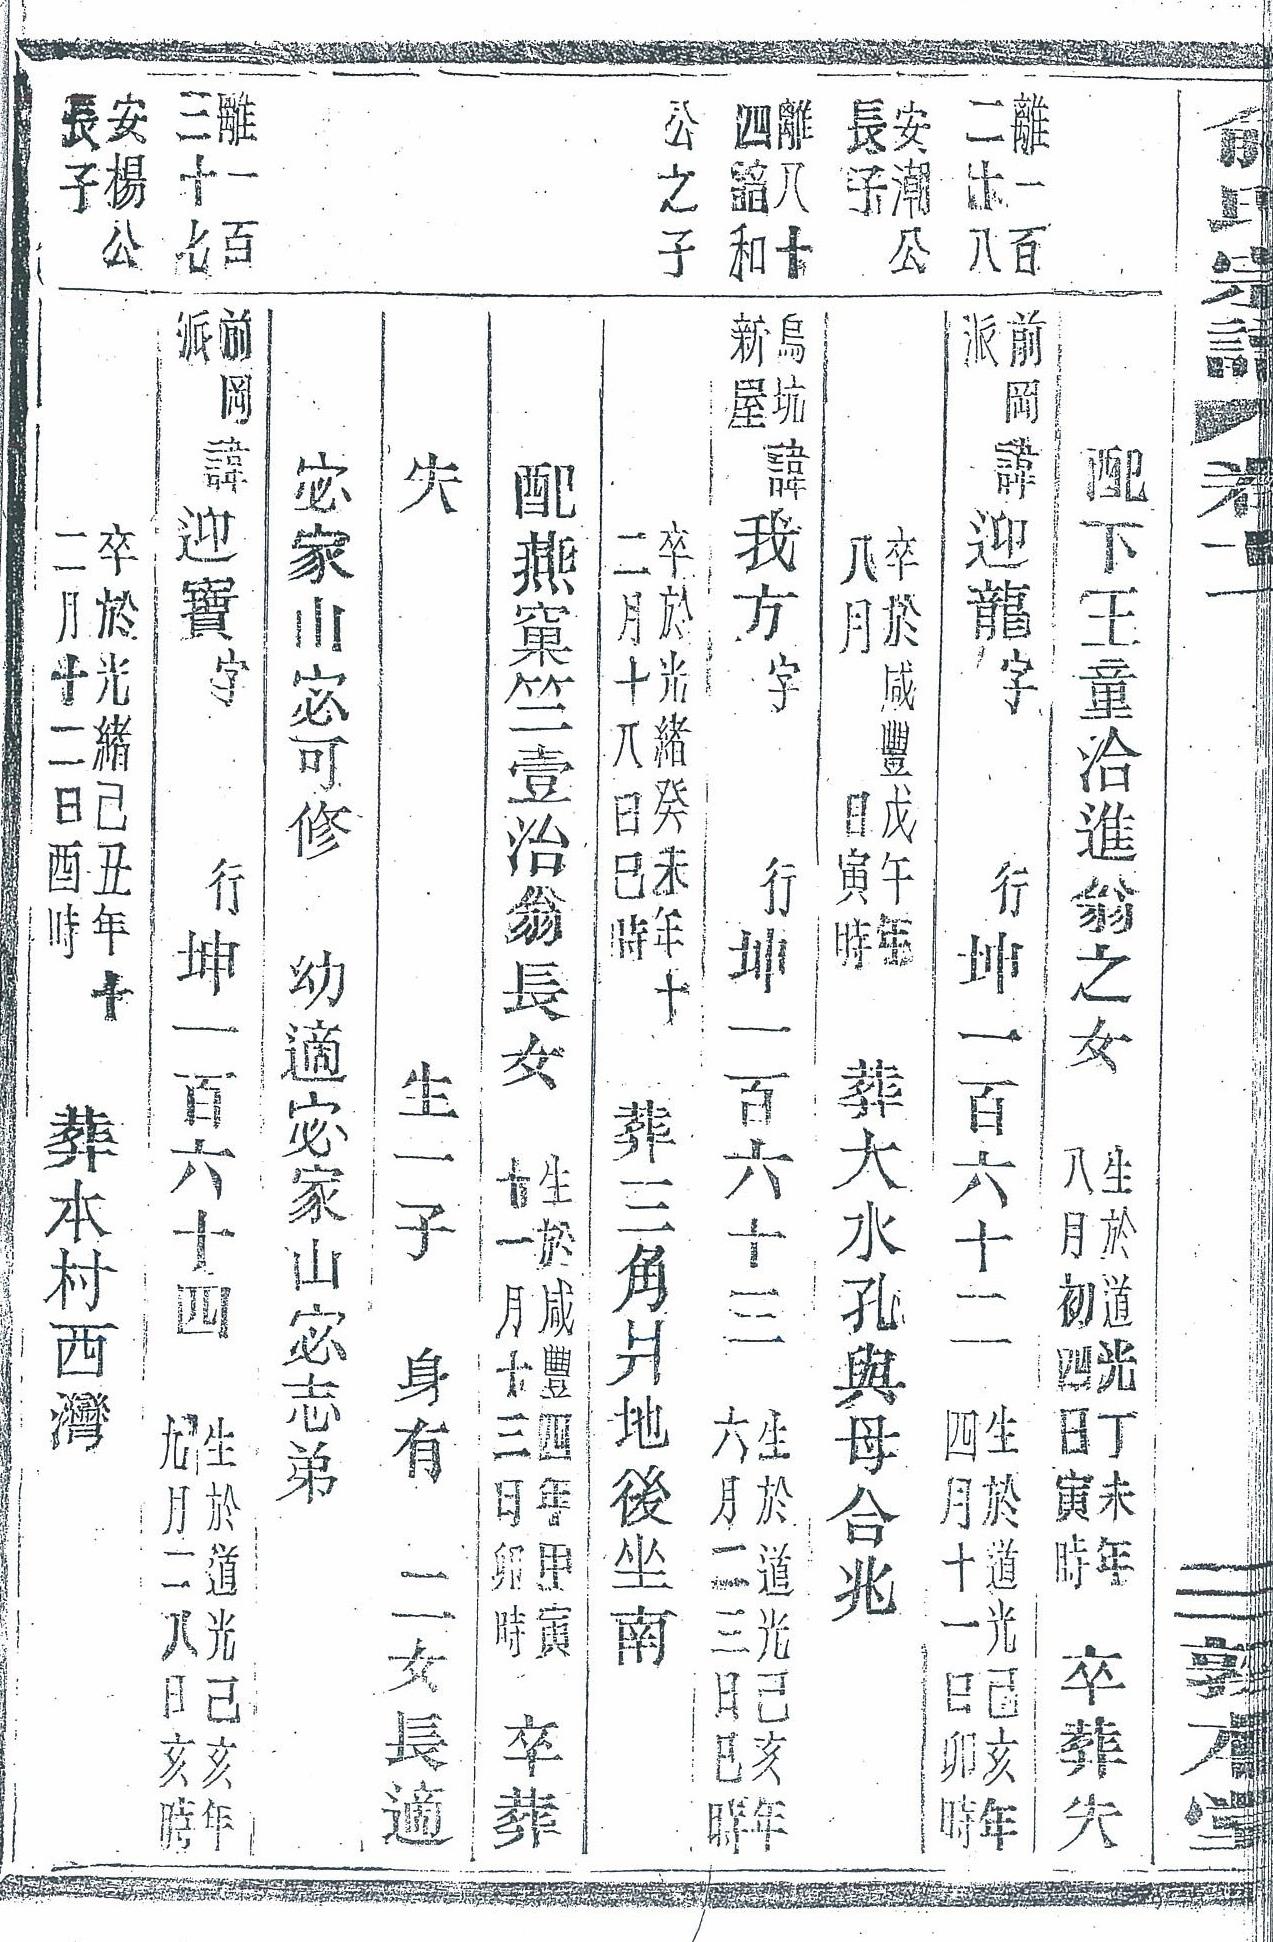 俞氏宗譜 卷十一
敦本堂
配下王童治進翁之女 生於道光丁未年八月初四日寅時 卒葬失
離一百二十八 安潮公長子
前岡派 諱迎龍字 行坤一百六十二 生於道光己亥年四月十一日卯時
卒於咸豐戊午年八月 日寅時 葬大水孔與母合兆
離八十四諮和公之子
烏坑新屋 諱我方字 行坤一百六十三 生於道光己亥年六月二三日巳時
卒於光緒癸未年十二月十八日巳時 葬三角爿地後坐南
配燕窠竺壹治翁長女 生於咸豐四年甲寅十一月十三日卯時 卒葬
失 生一子 身有 二女長適
宓家山宓可修 幼適宓家山宓志弟
離一百三十七 安楊公長子
前岡派 諱迎寶字 行坤一百六十四 生於道光己亥年九月二八日亥時
卒於光緒己丑年十二月十二日酉時 葬本村西灣